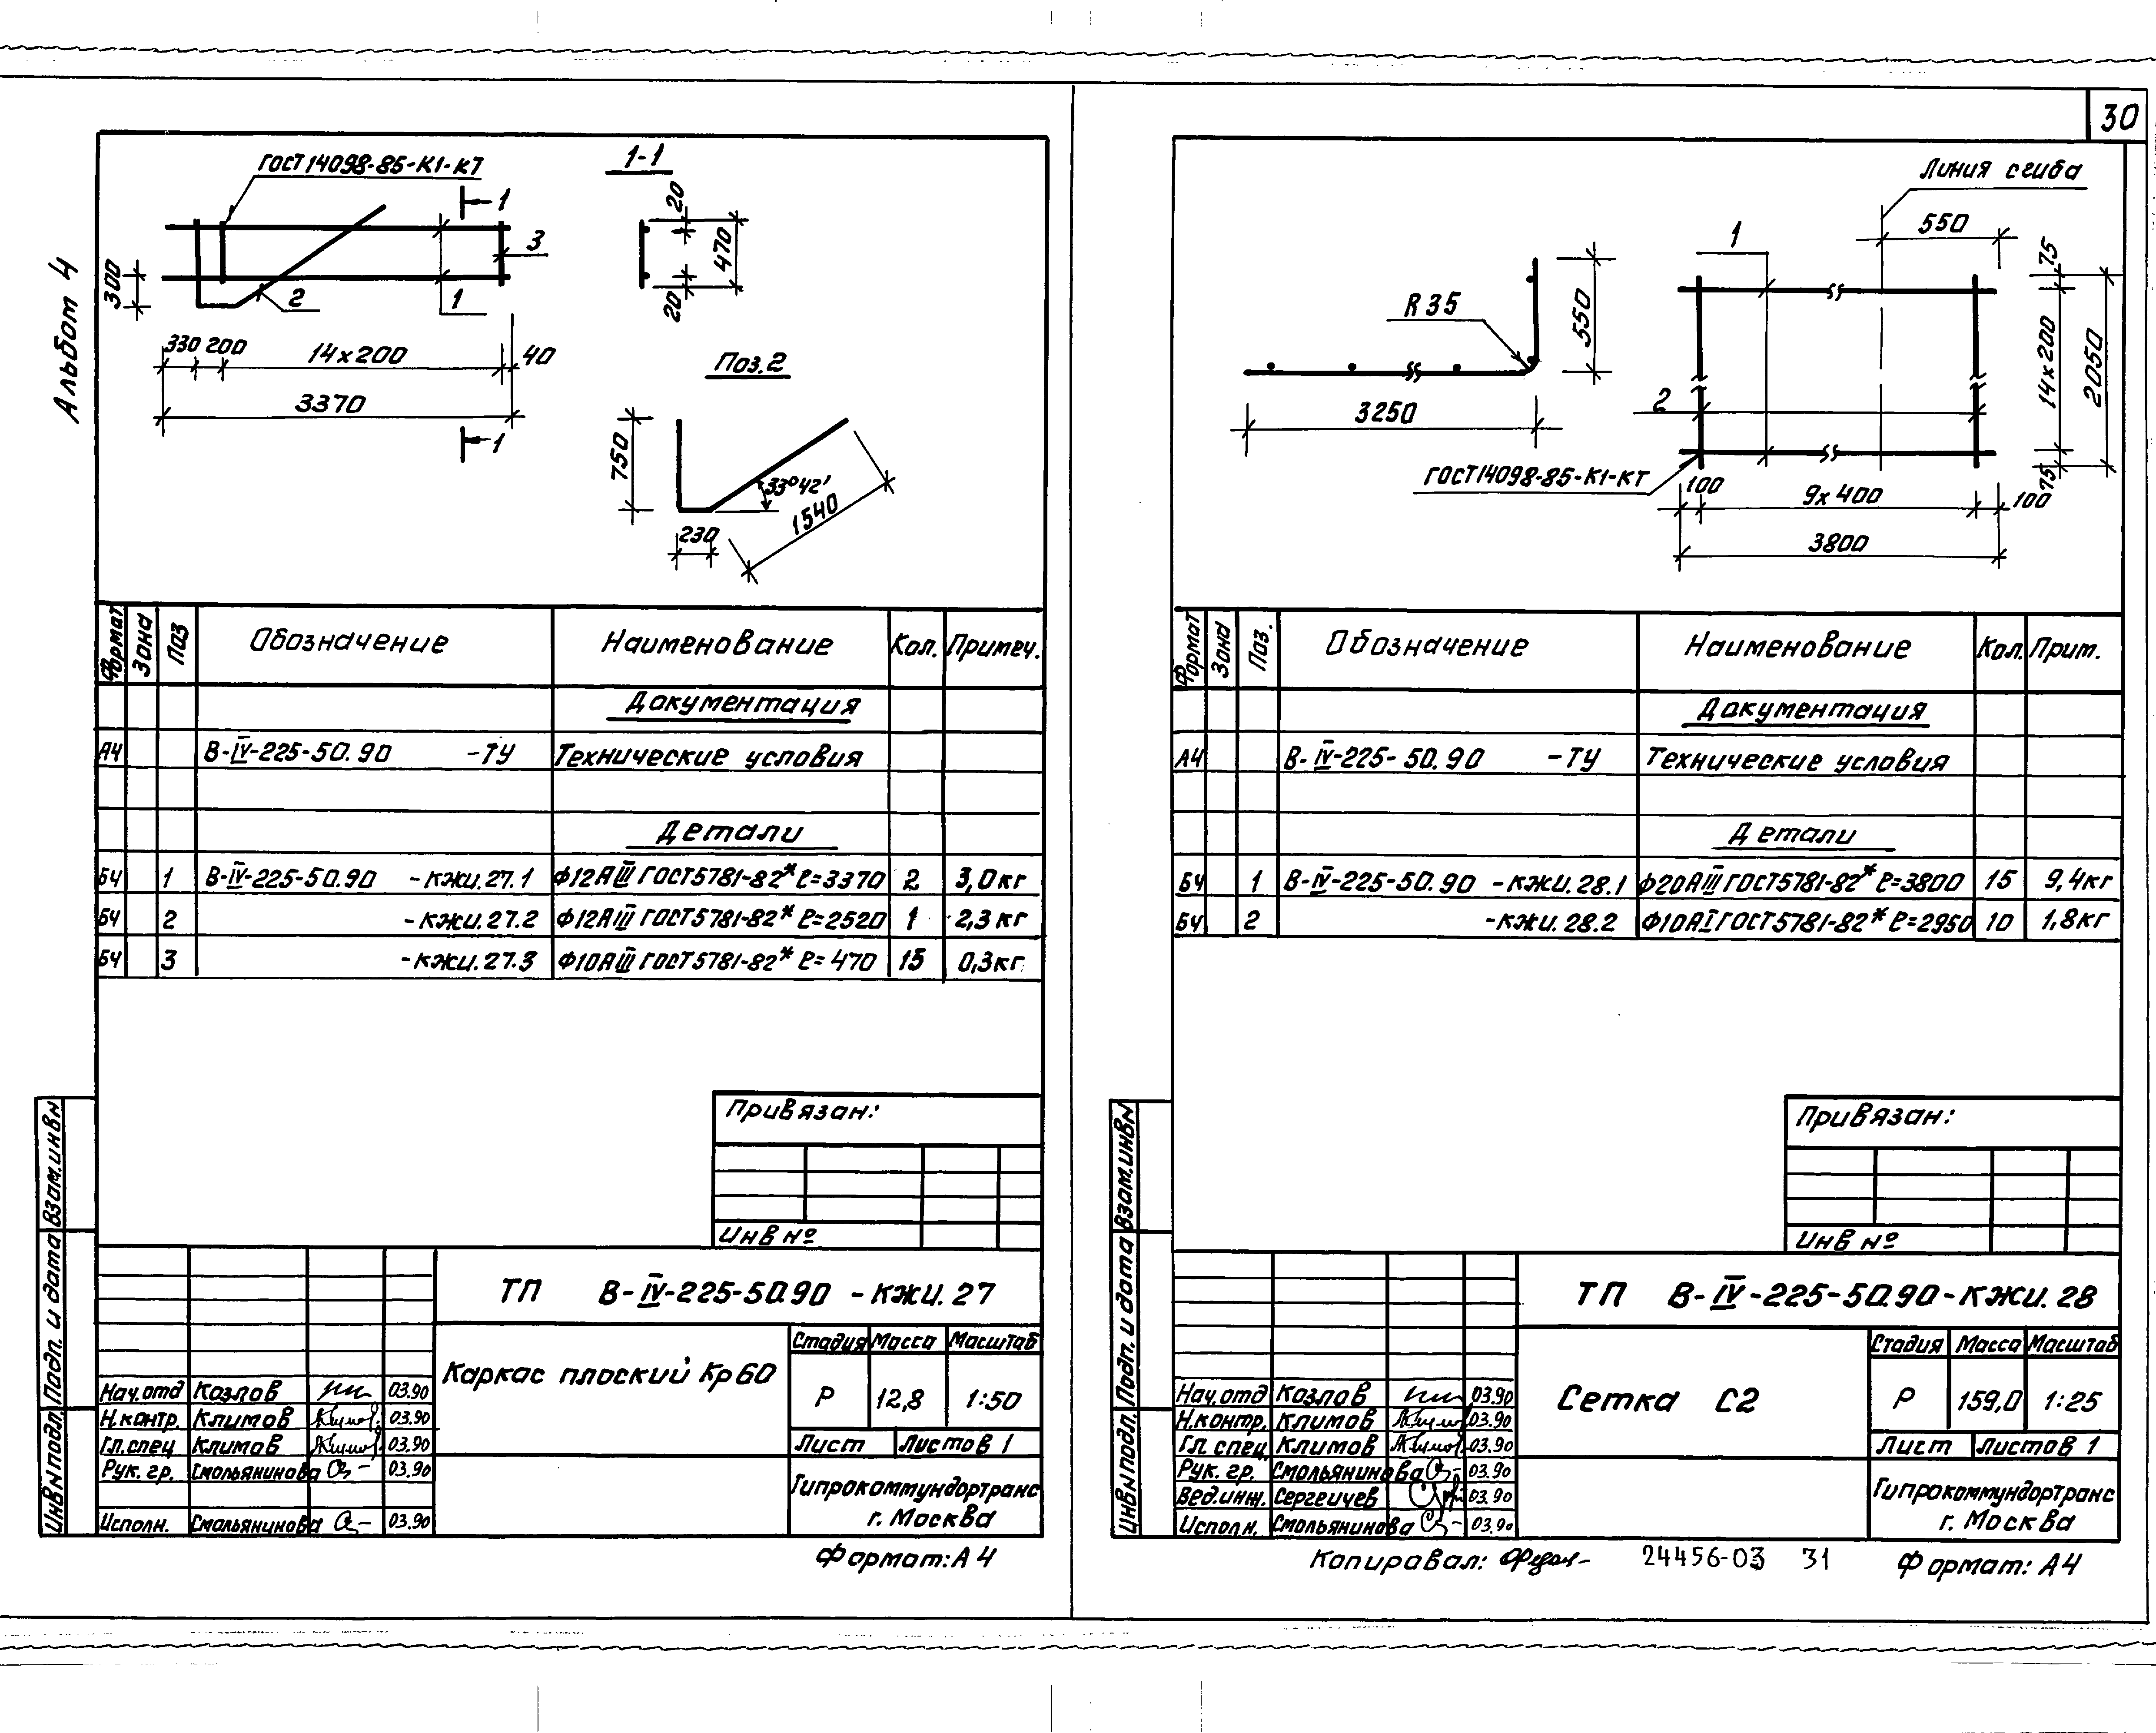 30
Альбом 4
ГОСТ14098-85-К1-КТ
1
1
3
2
1
300
330 200
14х200
40
3370
1-1
20
470
20
Поз.2
750
33°42'
1540
230
Формат Зона Поз Обозначение Наименование Кол. Примеч.
Документация
А4 В-IV-225-50.90 -ТУ Технические условия
Детали
Б4 1 В-IV-225-50.90 -КЖИ.27.1 Ф12АIII ГОСТ5781-82* ℓ=3370 2 3,0кг
Б4 2 -КЖИ.27.2 Ф12АIII ГОСТ5781-82* ℓ=2520 1 2,3кг
Б4 3 -КЖИ.27.3 Ф10АIII ГОСТ5781-82* ℓ=470 15 0,3кг
Привязан:
Инв №
ТП В-IV-225-50.90 -КЖИ.27
Каркас плоский Кр60
Стадия Масса Масштаб
Р 12,8 1:50
Лист Листов 1
Гипрокоммундортранс
г. Москва
Нач.отд Козлов 03.90
Н.контр. Климов 03.90
Гл.спец Климов 03.90
Рук. гр. Смольянинова 03.90
Исполн. Смольянинова 03.90
Взам.инв№
Подп. и дата
Инв№подл.
Формат: А4
R35
550
3250
Линия сгиба
550
1
2
75
14х200
2050
75
ГОСТ14098-85-К1-КТ
100
9х400
100
3800
Формат Зона Поз. Обозначение Наименование Кол. Прим.
Документация
А4 В-IV-225-50.90 -ТУ Технические условия
Детали
Б4 1 В-IV-225-50.90 -КЖИ.28.1 Ф20АIII ГОСТ5781-82* ℓ=3800 15 9,4кг
Б4 2 -КЖИ.28.2 Ф10АI ГОСТ5781-82* ℓ=2950 10 1,8кг
Привязан:
Инв №
ТП В-IV-225-50.90-КЖИ.28
Сетка С2
Стадия Масса Масштаб
Р 159,0 1:25
Лист Листов 1
Гипрокоммундортранс
г. Москва
Нач.отд Козлов 03.90
Н.контр. Климов 03.90
Гл.спец. Климов 03.90
Рук. гр. Смольянинова 03.90
Вед.инж. Сергеичев 03.90
Исполн. Смольянинова 03.90
Взам.инв№
Подп. и дата
Инв№подл.
Копировал: 24456-03 31 Формат: А4